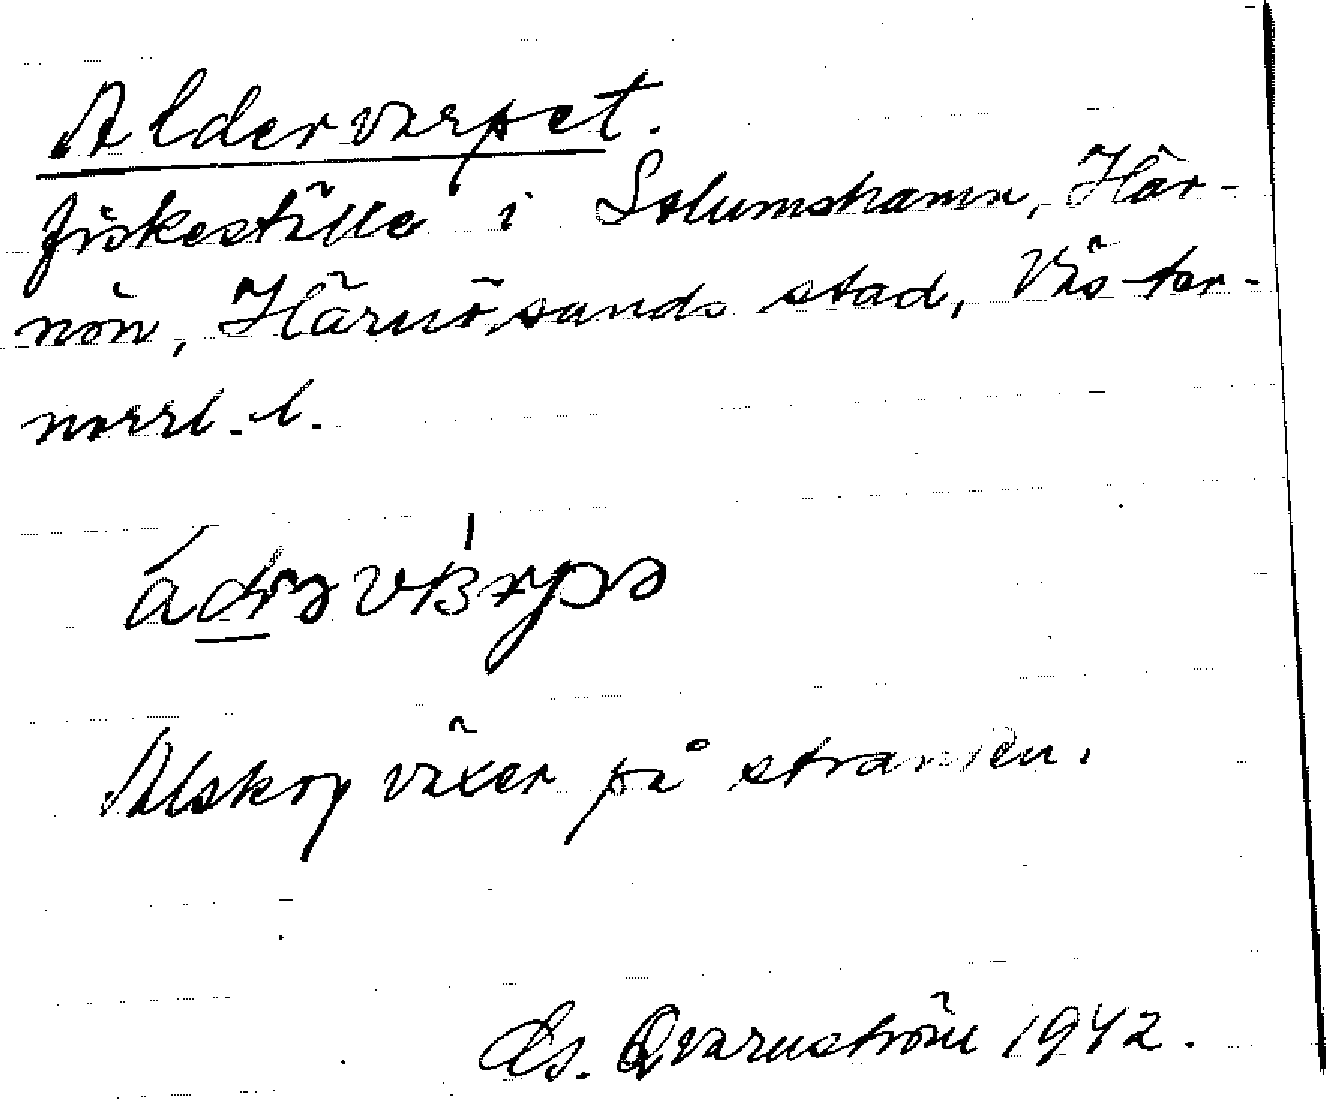 Aldervarpet.
fiskeställe i Solumshamn, Här-
nön, Härnösands stad, Väster-
norrl. l.
Alskog växer på stranden.
Es. Qvarnström 1942.